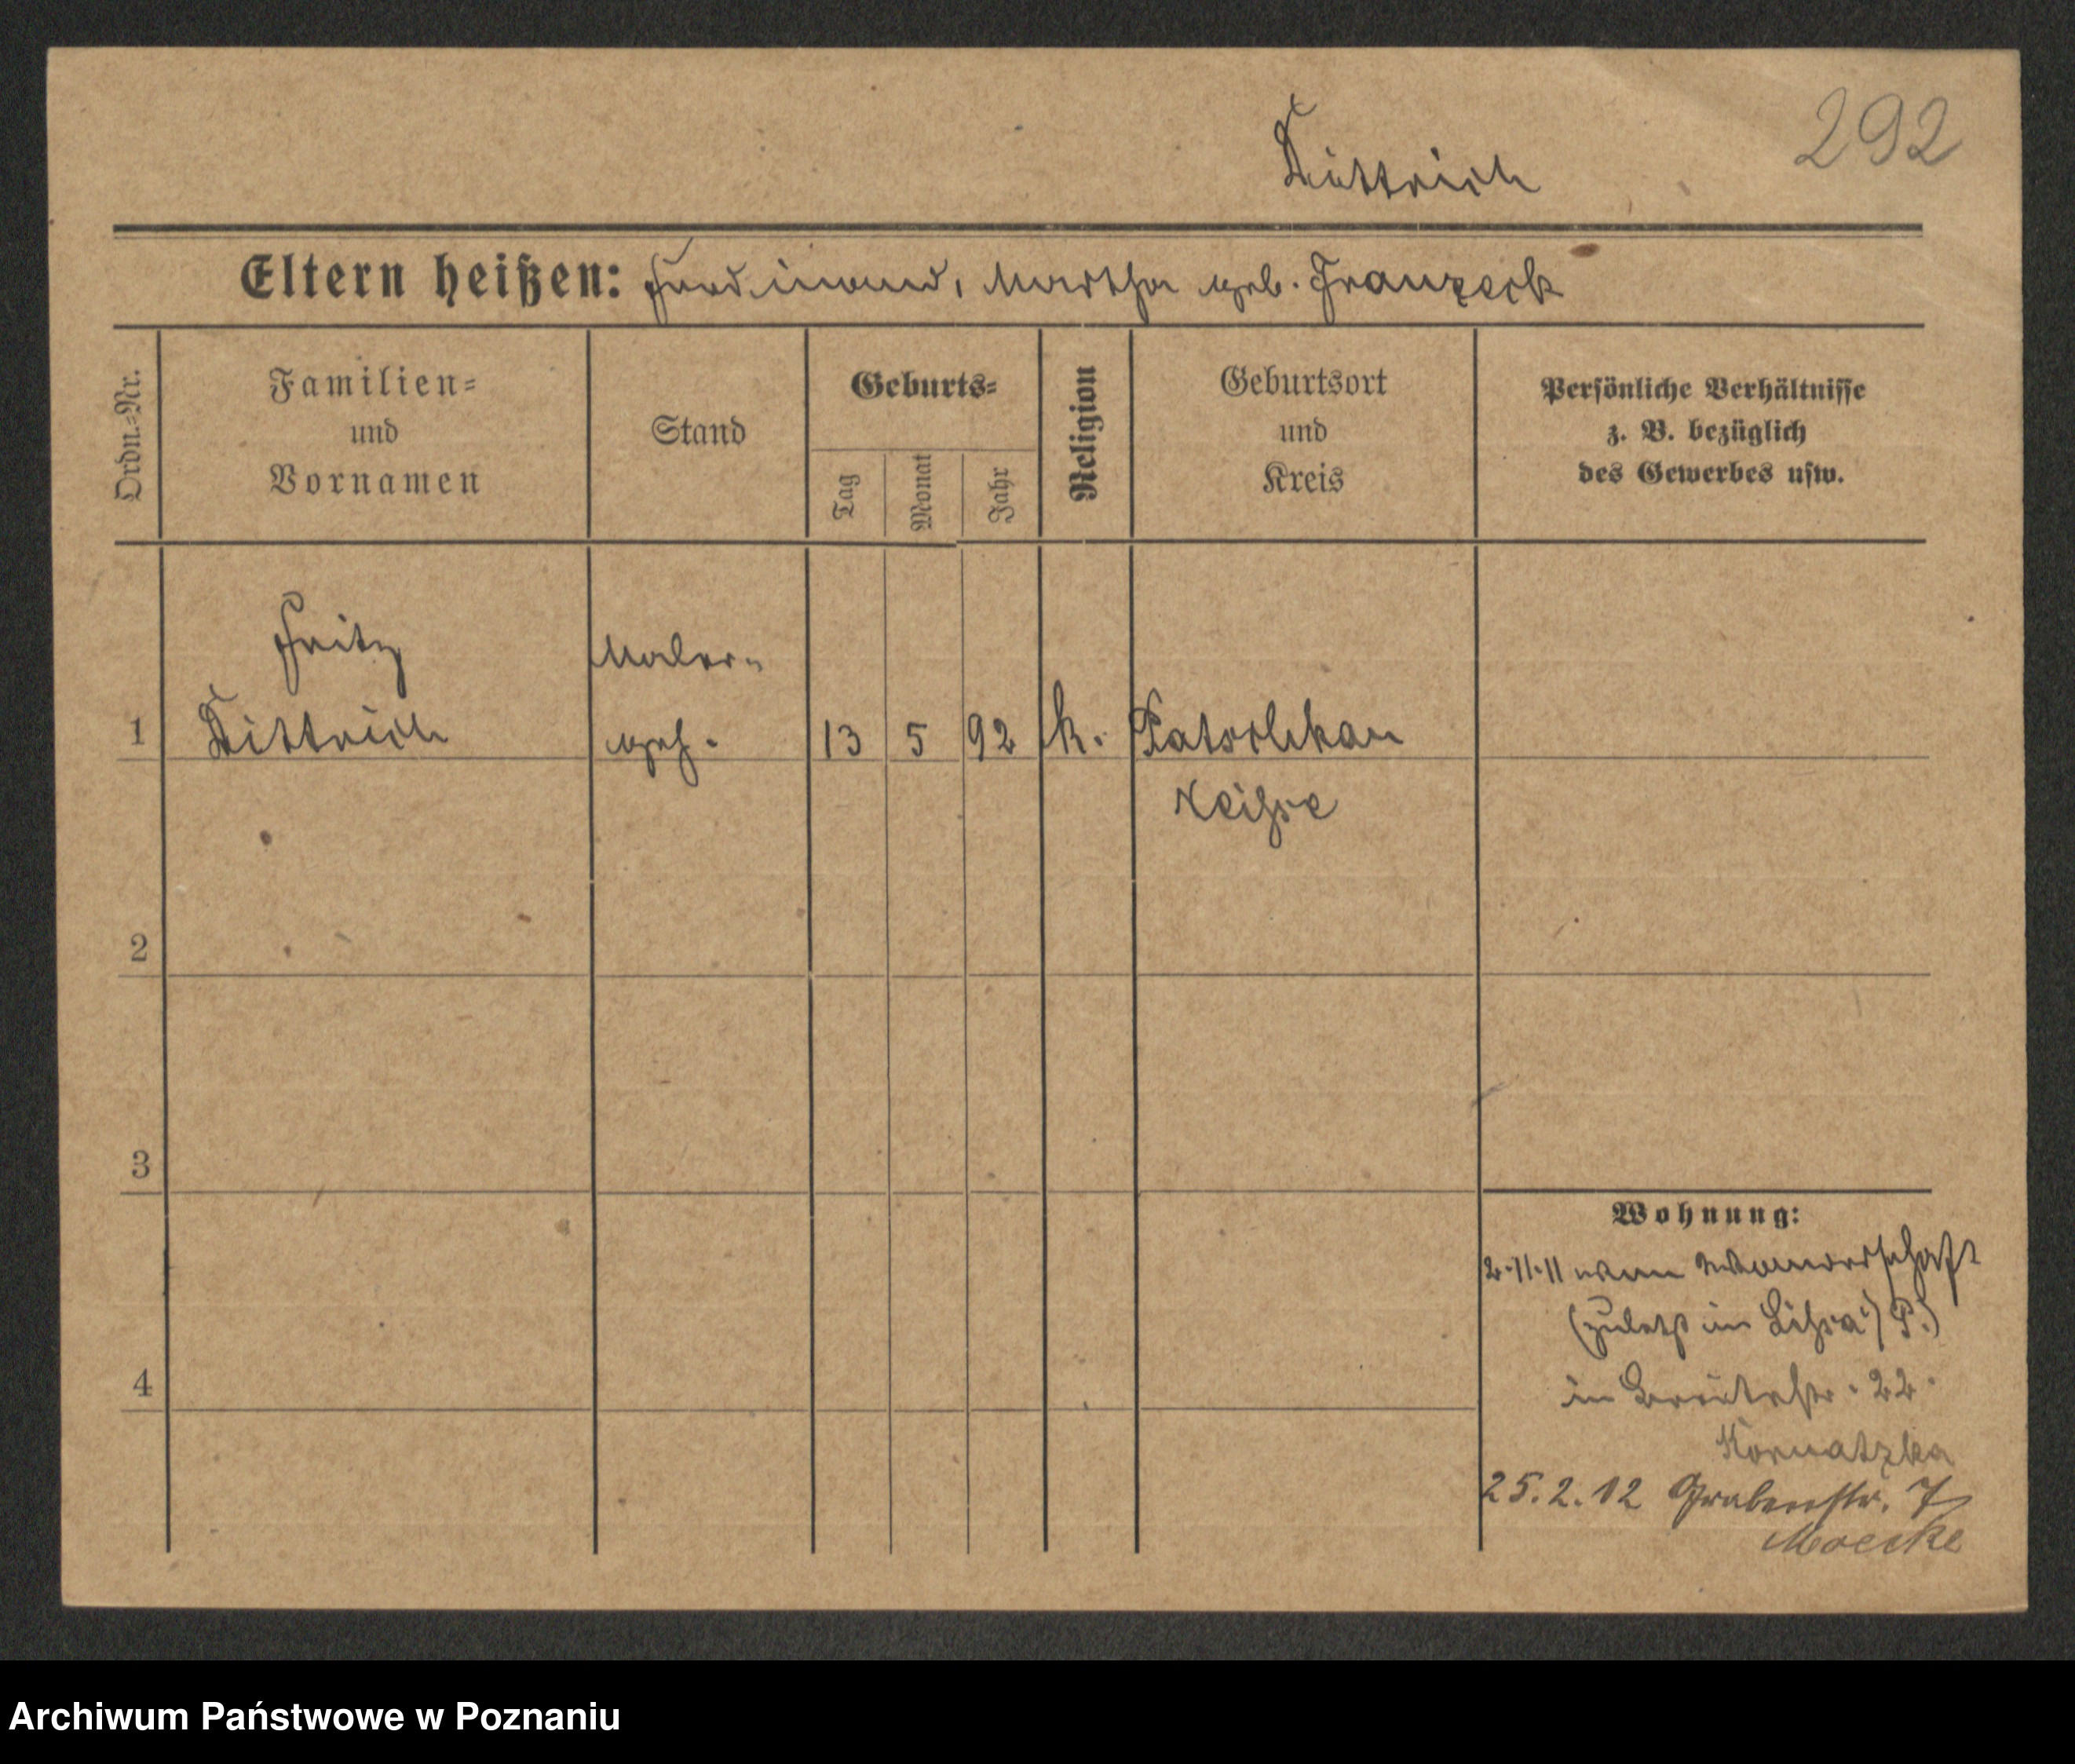 292
Dittrich
Eltern heißen: Ferdinand, Martha geb. Franzeck
Ordn.=Nr.
Familien=
und
Vornamen
Stand
Geburts=
Tag
Monat
Jahr
Religion
Geburtsort
und
Kreis
Persönliche Verhältnisse
z. B. bezüglich
des Gewerbes usw.
Fritz Maler=
1 Dittrich geh. 13 5 92 k. Patschkau
Neisse
2
3
4
Wohnung:
2.11.11 von Wanderschaft
(zuletzt in Lissa i/P.)
in Breitestr. 22.
Kornatzka
25.2.12 Grabenstr. 7
Moecke
Archiwum Państwowe w Poznaniu